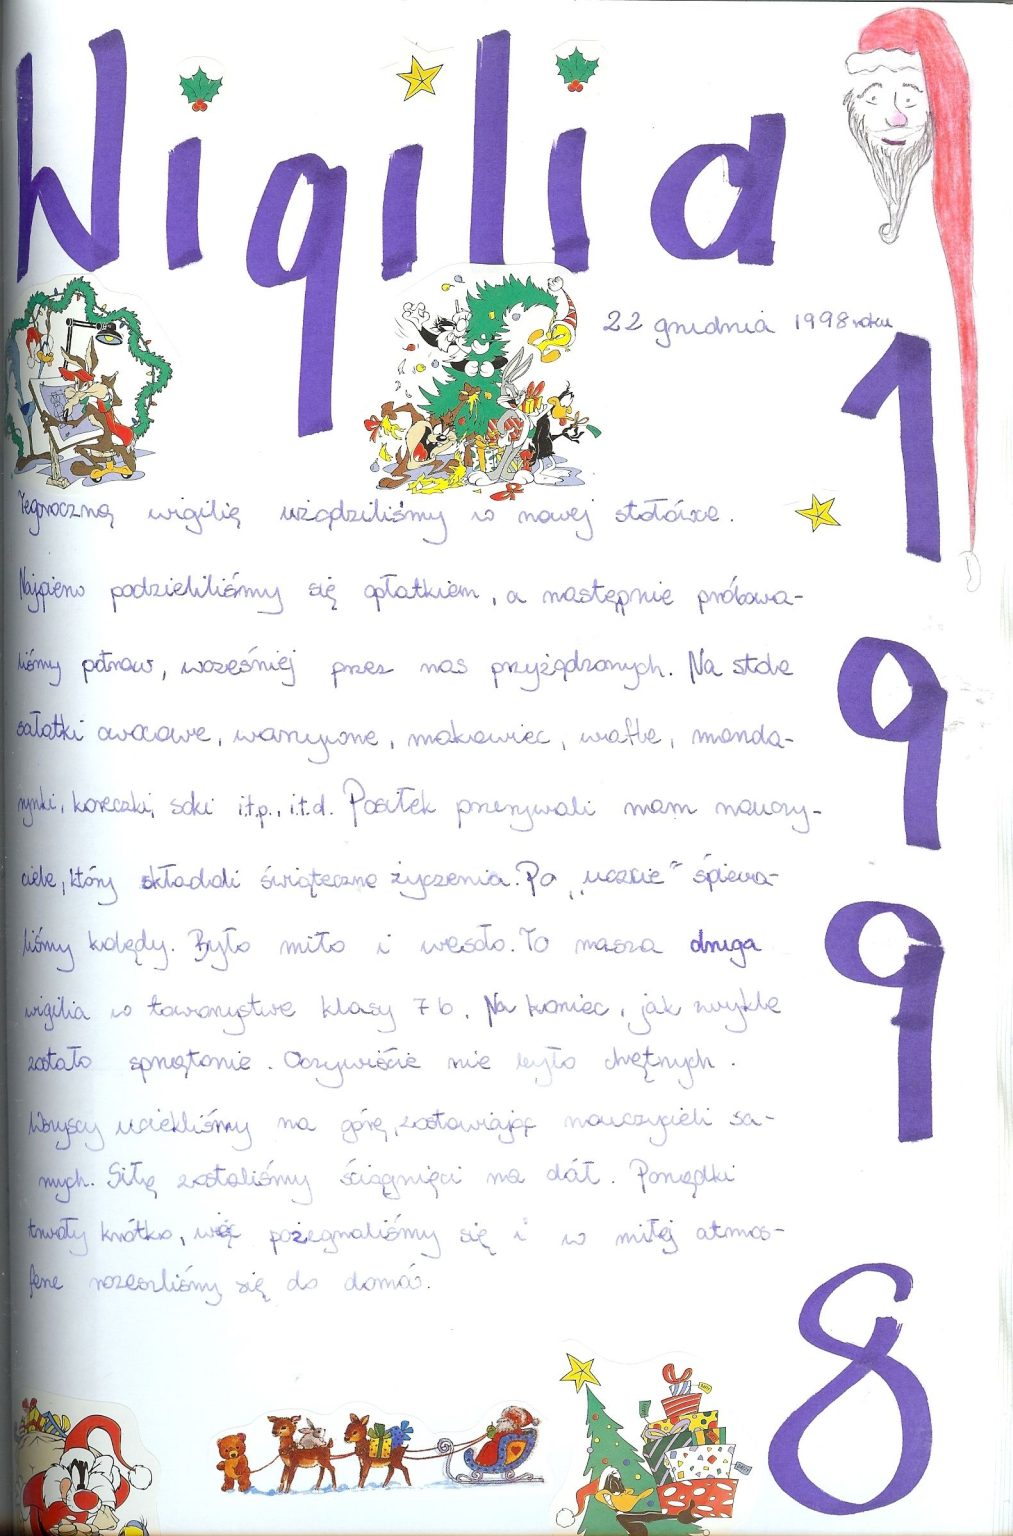 Wigilia
22 grudnia 1998 roku
1998
Tegoroczną wigilię urządziliśmy w nowej stołówce.
Najpierw podzieliliśmy się opłatkiem, a następnie próbowa-
liśmy potraw, wcześniej przez nas przyżądzonych. Na stole
sałatki owocowe, warzywne, makowiec, wafle, manda-
rynki, koreczki, soki i.t.p., i.t.d. Posiłek przerywali nam nauczy-
ciele, który składali świąteczne życzenia. Po „uczcie" śpiewa-
liśmy kolędy. Było miło i wesoło. To nasza druga
wigilia w towarzystwie klasy 7b. Na koniec, jak zwykle
zostało sprzątanie. Oczywiście nie było chętnych.
Wszyscy uciekliśmy na górę, zostawiając nauczycieli sa-
mych. Siłą zostaliśmy ściągnięci na dół. Porządki
trwały krótko, więc pożegnaliśmy się i w miłej atmos-
ferze rozeszliśmy się do domów.